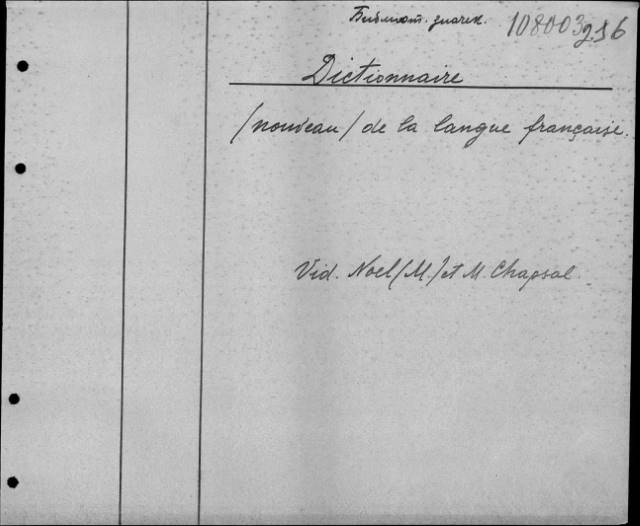 Библиот. 108003
216
Dictionnaire
/nouveau/ de la langue française.
Vid. Noel (M.) et M. Chapsal.